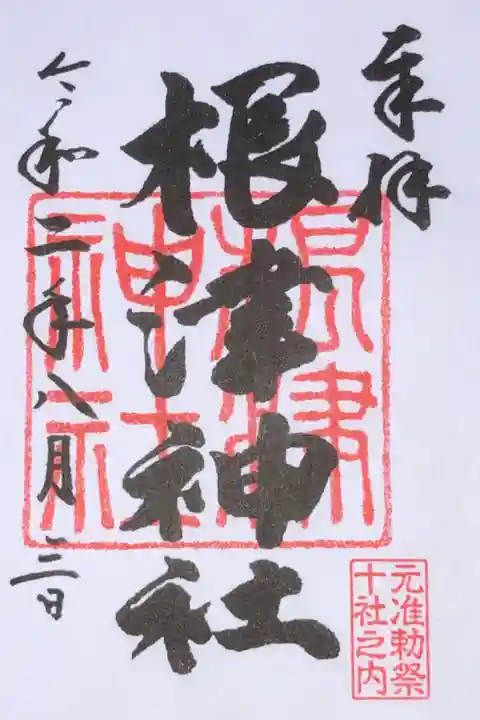 奉拝
根津神社
根津
神社
令和二年八月三日
元准勅祭
十社之内